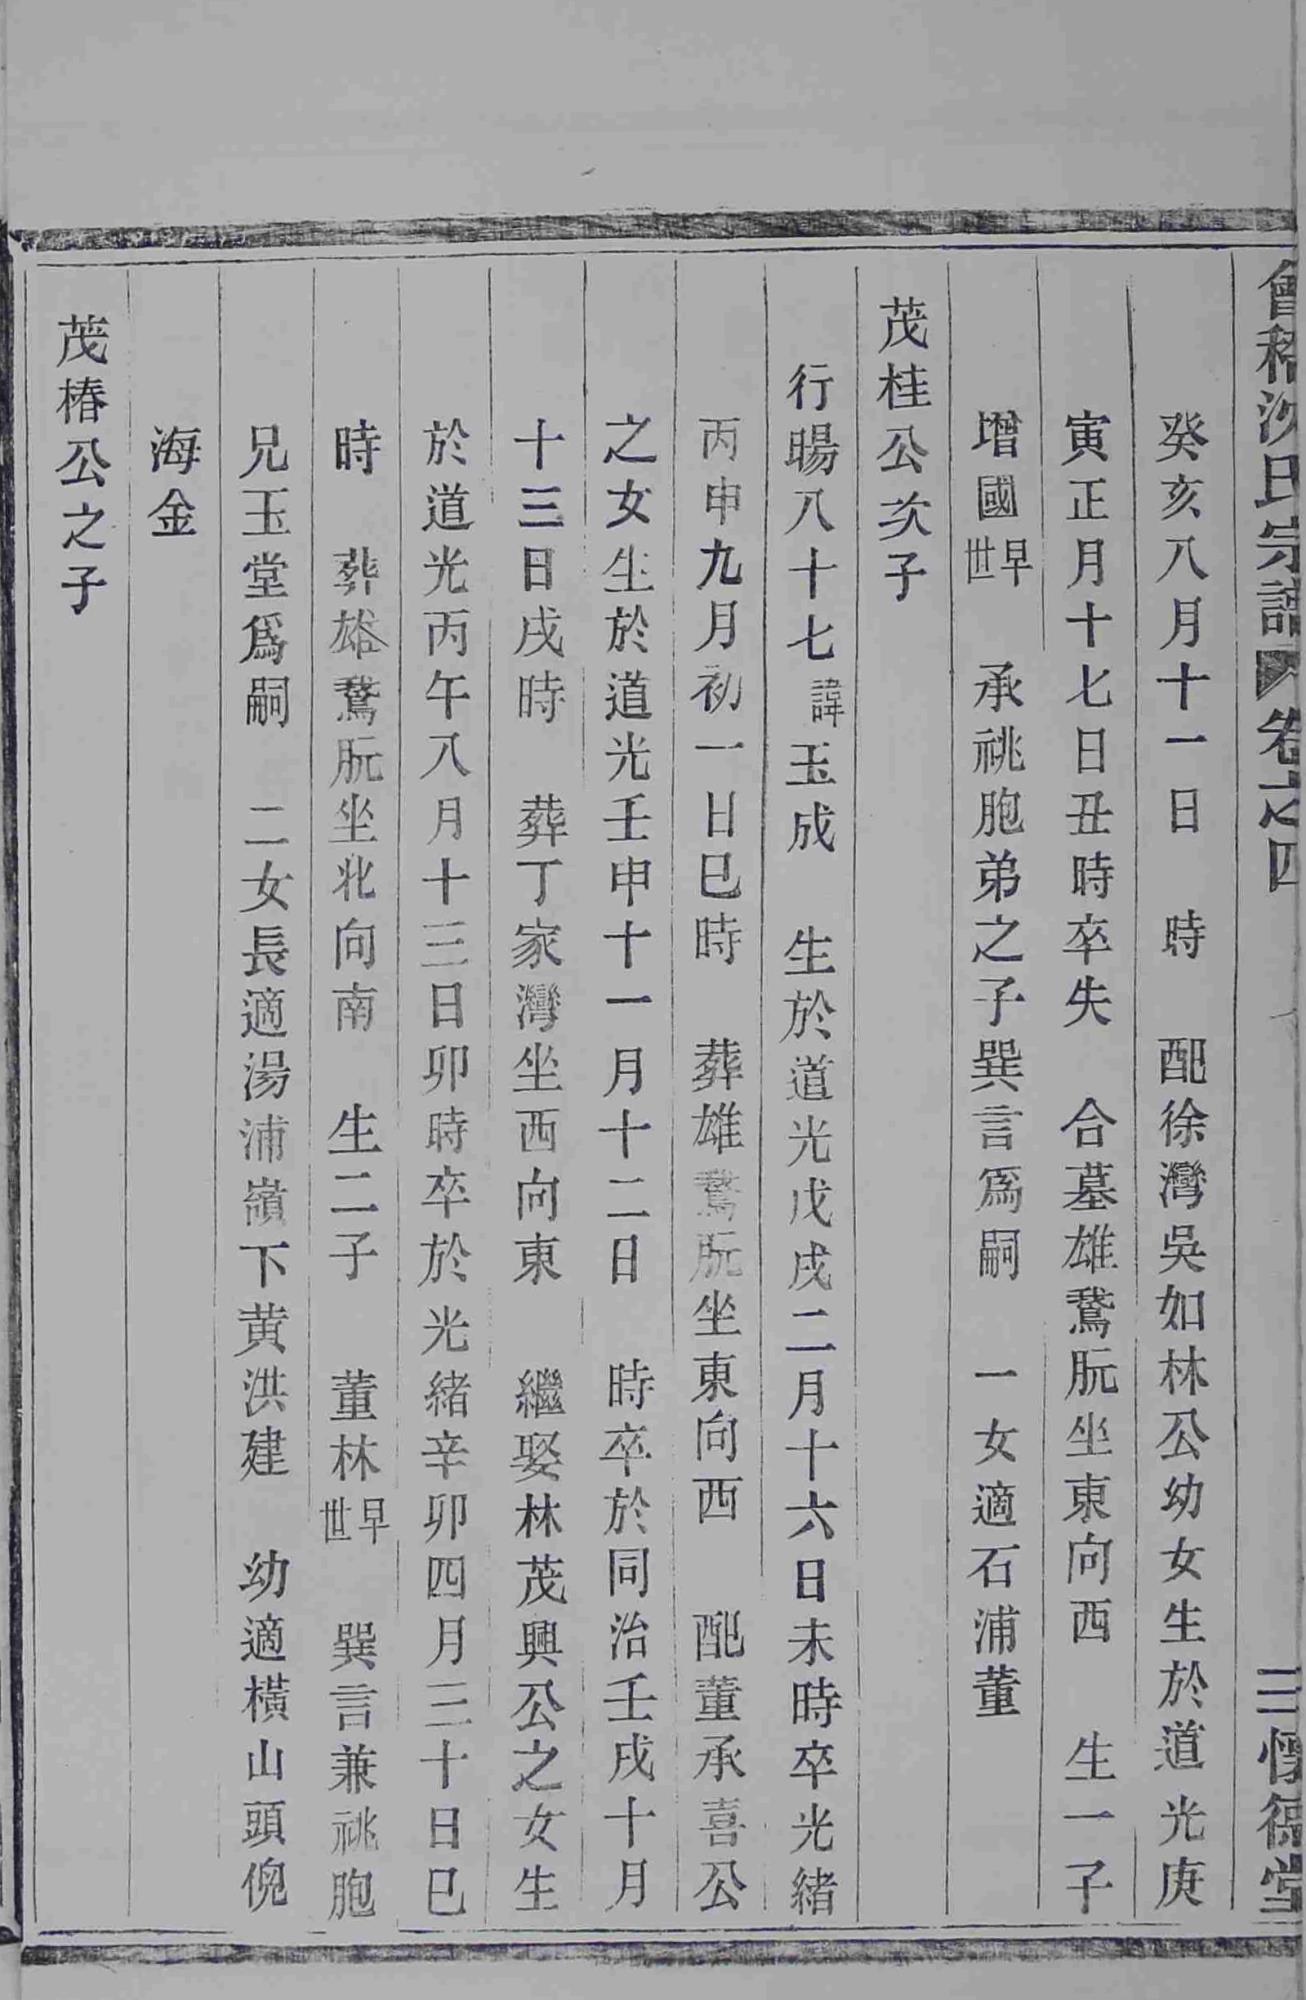 會稽沈氏宗譜 卷之四 三 惇德堂
癸亥八月十一日 時 配徐灣吳如林公幼女生於道光庚
寅正月十七日丑時卒失 合墓雄鵞朊坐東向西 生一子
增國早世 承祧胞弟之子巽言爲嗣 一女適石浦董
茂桂公次子
行暘八十七諱玉成 生於道光戊戌二月十六日未時卒光緒
丙申九月初一日巳時 葬雄鵞朊坐東向西 配董承喜公
之女生於道光壬申十一月十二日 時卒於同治壬戌十月
十三日戌時 葬丁家灣坐西向東 繼娶林茂興公之女生
於道光丙午八月十三日卯時卒於光緒辛卯四月三十日巳
時 葬雄鵞朊坐北向南 生二子 董林早世 巽言兼祧胞
兄玉堂爲嗣 二女長適湯浦嶺下黄洪建 幼適橫山頭倪
海金
茂椿公之子